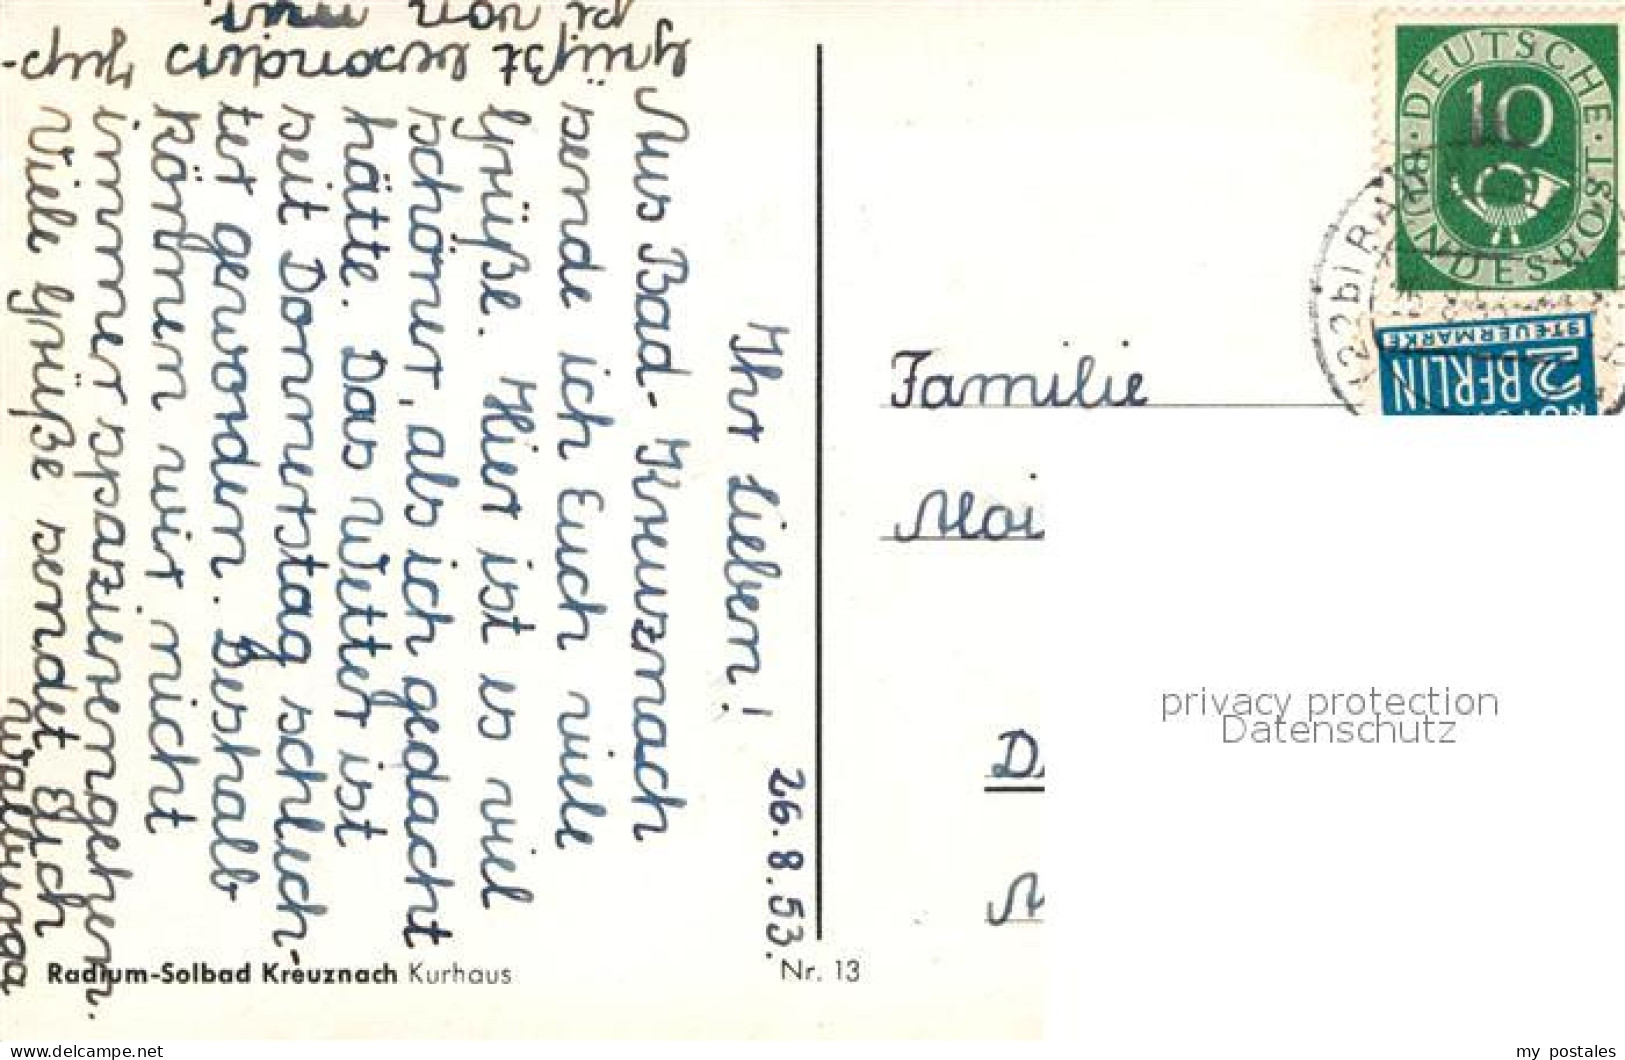 26.8.53.
Ihr Lieben!
Aus Bad-Kreuznach
sende ich Euch viele
Grüße. Hier ist es viel
schöner, als ich gedacht
hätte. Das Wetter ist
seit Donnerstag schlech-
ter geworden. Deshalb
können wir nicht
immer spazierengehen.
Viele Grüße sendet Euch
Walburga
grüßt besonders
von mir.
Familie
Moi
D
M
DEUTSCHE BUNDESPOST
10
(22b) BAD
2 BERLIN
STEUERMARKE
Radium-Solbad Kreuznach Kurhaus
Nr. 13
privacy protection
Datenschutz
my postales